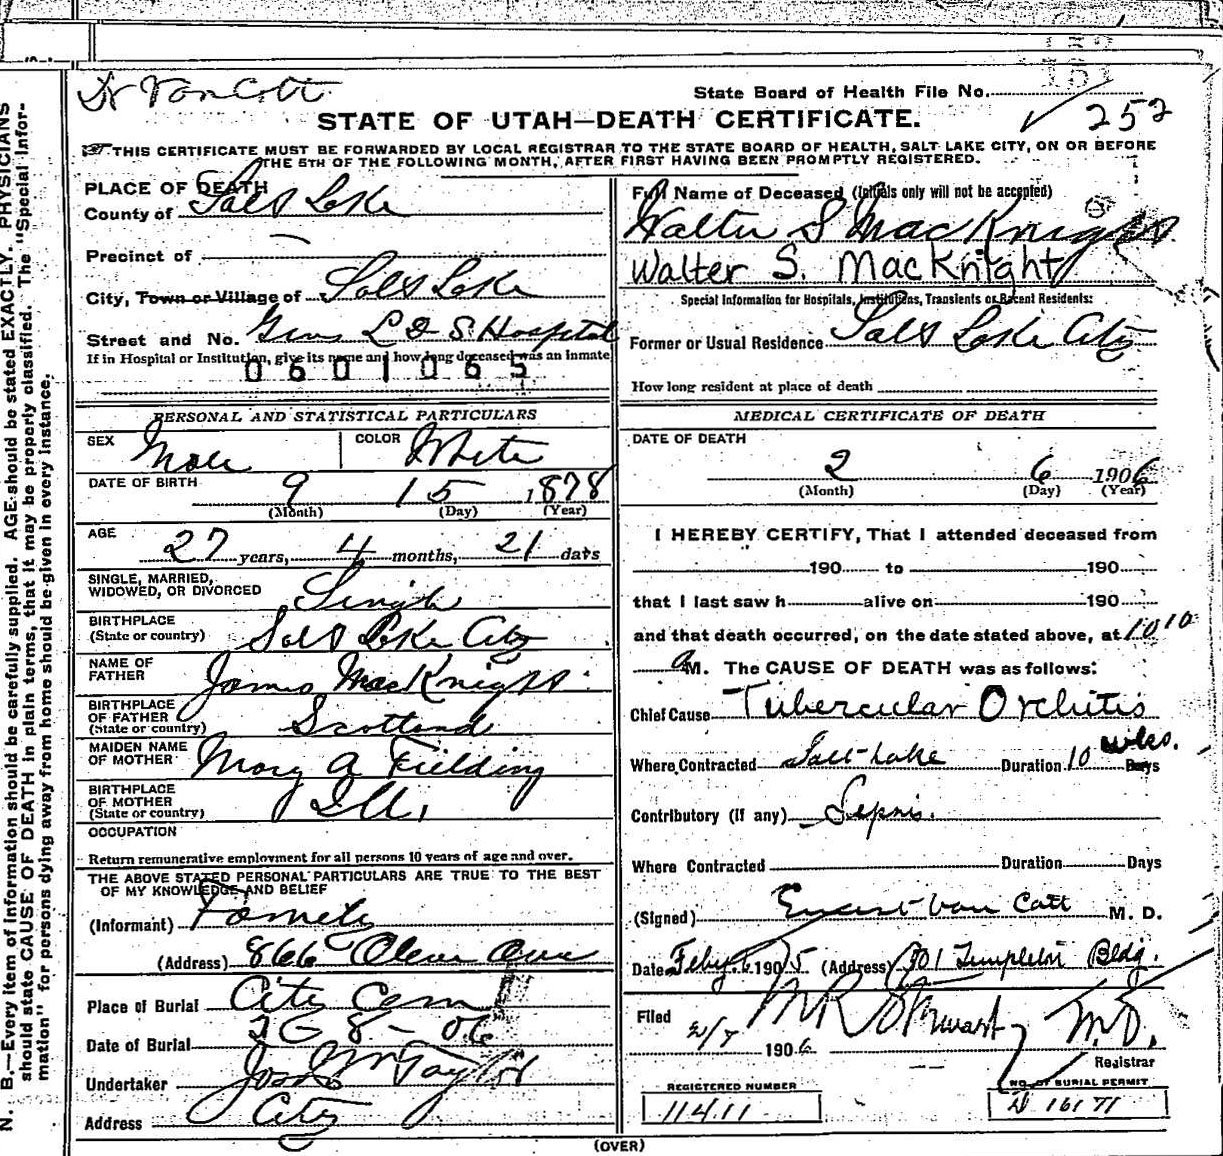 Dr Van Cott
State Board of Health File No.
252
STATE OF UTAH—DEATH CERTIFICATE.
THIS CERTIFICATE MUST BE FORWARDED BY LOCAL REGISTRAR TO THE STATE BOARD OF HEALTH, SALT LAKE CITY, ON OR BEFORE
THE 5TH OF THE FOLLOWING MONTH, AFTER FIRST HAVING BEEN PROMPTLY REGISTERED.
PLACE OF DEATH
County of Salt Lake
Precinct of —
City, Town or Village of Salt Lake
Street and No. L D S Hospital
If in Hospital or Institution, give its name and how long deceased was an inmate
0601065
Full Name of Deceased (Initials only will not be accepted)
Walter S MacKnight
Walter S. MacKnight
Special Information for Hospitals, Institutions, Transients or Recent Residents:
Former or Usual Residence Salt Lake City
How long resident at place of death
PERSONAL AND STATISTICAL PARTICULARS
SEX Male COLOR White
DATE OF BIRTH 9 15 1878
(Month) (Day) (Year)
AGE 27 years, 4 months, 21 days
SINGLE, MARRIED,
WIDOWED, OR DIVORCED Single
BIRTHPLACE
(State or country) Salt Lake City
NAME OF
FATHER James MacKnight
BIRTHPLACE
OF FATHER
(State or country) Scotland
MAIDEN NAME
OF MOTHER Mary A Fielding
BIRTHPLACE
OF MOTHER
(State or country) Ill.
OCCUPATION
Return remunerative employment for all persons 10 years of age and over.
THE ABOVE STATED PERSONAL PARTICULARS ARE TRUE TO THE BEST
OF MY KNOWLEDGE AND BELIEF
(Informant) Family
(Address) 866 Ave
Place of Burial City Cem
Date of Burial 2 8 - 06
Undertaker Jos Wm Taylor
Address City
MEDICAL CERTIFICATE OF DEATH
DATE OF DEATH
2 6 1906
(Month) (Day) (Year)
I HEREBY CERTIFY, That I attended deceased from
190 to 190
that I last saw h alive on 190
and that death occurred, on the date stated above, at 10 10
a M. The CAUSE OF DEATH was as follows:
Chief Cause Tubercular Orchitis
Where Contracted Salt Lake Duration 10 wks. Days
Contributory (if any) Sepsis.
Where Contracted Duration Days
(Signed) Ernest Van Cott M. D.
Date Feby. 6 1905 (Address) 501 Templeton Bldg.
Filed
2/7 1906 M R Stewart M.D.
Registrar
REGISTERED NUMBER
11411
NO. OF BURIAL PERMIT
D 16171
(OVER)
N. B.—Every item of information should be carefully supplied. AGE should be stated EXACTLY. PHYSICIANS
should state CAUSE OF DEATH in plain terms, that it may be properly classified. The "Special Infor-
mation" for persons dying away from home should be given in every instance.